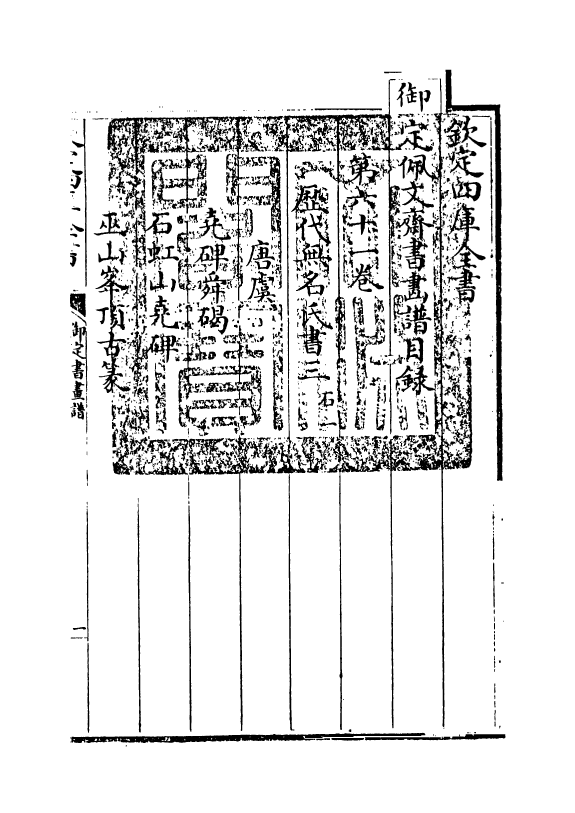 欽定四庫全書
御定佩文齋書畫譜目録
第六十一卷
歷代無名氏書三石一
唐虞
堯碑舜碣
石虹山堯碑
巫山峯頂古篆
御定書畫譜
一